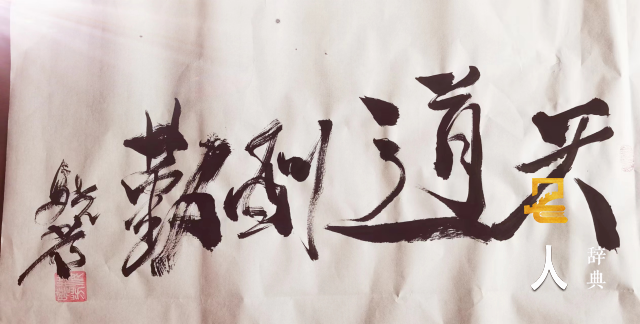 天道酬勤
人
辞典